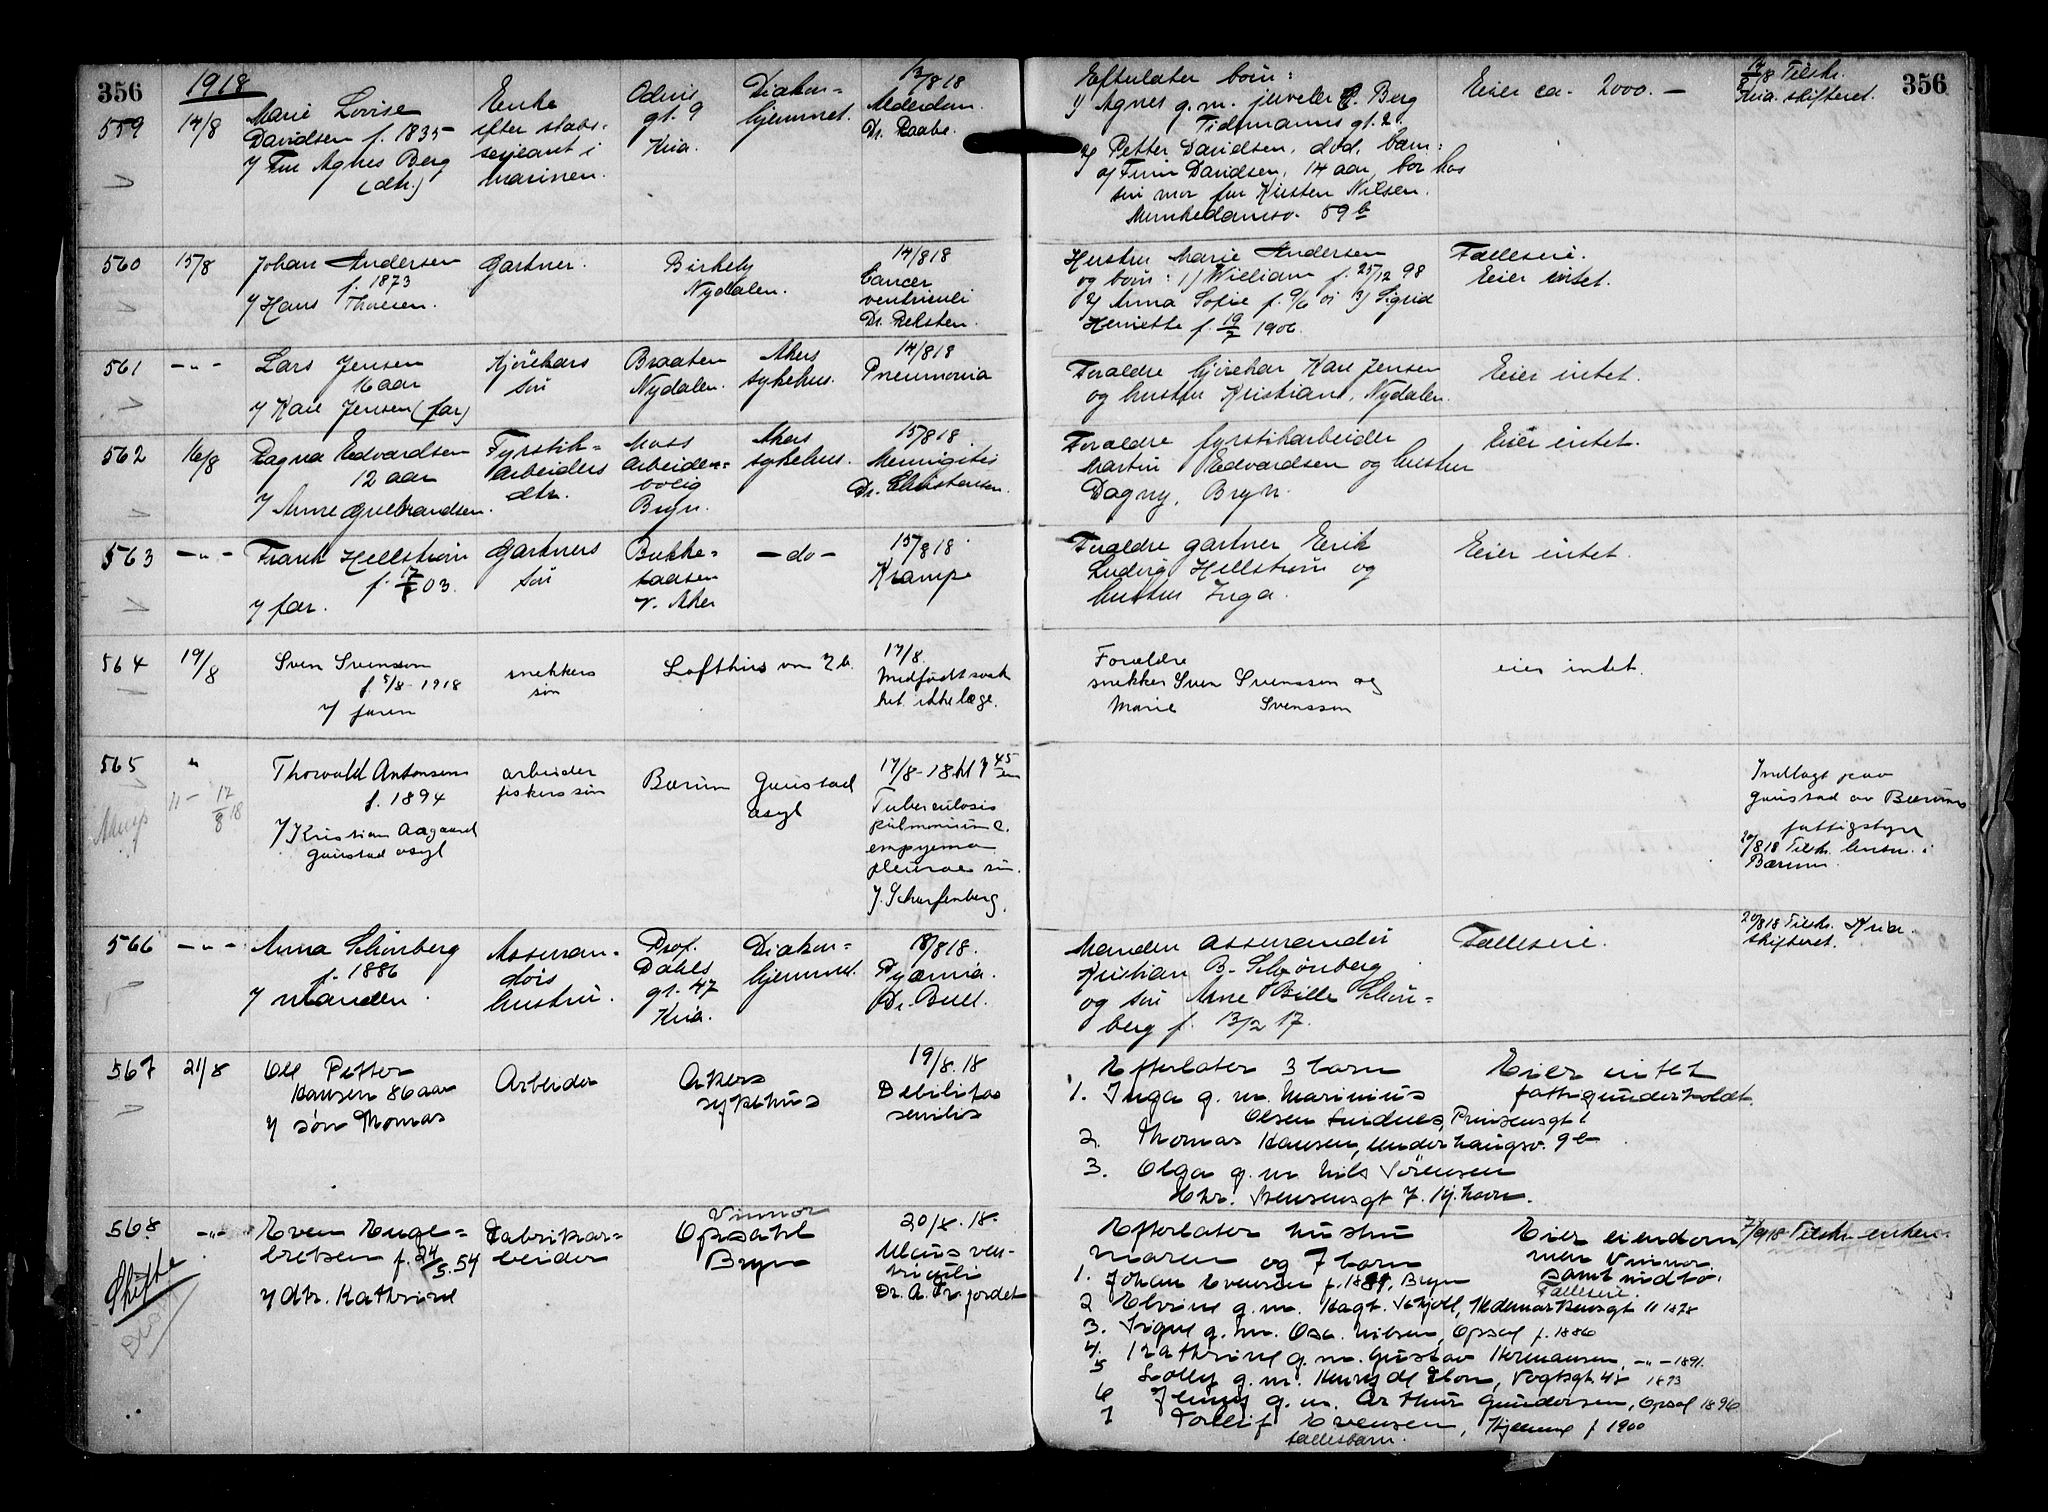 356
1918
559
14/8
Marie Lovise
Davidsen f. 1835
v/ Fru Agnes Berg
(dtr.)
Enke
efter stabs-
serjeant i
marinen.
Odins
gt. 9
Kria.
Diakon-
hjemmet.
13/8 18
Alderdom.
Dr. Raabe.
Efterlater barn:
1/ Agnes g. m. juveler C. Berg
Tidemanns gt. 2.
2/ Petter Davidsen, död, barn:
a/ Finn Davidsen, 14 aar, bor hos
sin mor fru Kirsten Nilsen.
Munkedamsv. 59 b
Eier ca. 2000.—
14/8 Tilskr.
Kria. skifteret.
356
560
15/8
Johan Andersen
f. 1873
v/ Hans Thoresen.
Gartner.
Birkely
Nydalen.
14/8 18
Cancer
ventriculi
Dr. Relsten.
Hustru Marie Andersen
og barn: 1/ William f. 25/12 98
2/ Anna Sofie f. 9/6 01 3/ Sigrid
Henriette f. 19/7 1906.
Fælleseie.
Eier intet.
561
— „ —
Lars Jensen
16 aar
v/ Karl Jensen (far)
Kjörekars
sön
Braaten
Nydalen.
Akers
sykehus.
14/8 18
Pneumonia
Forældre kjörekar Karl Jensen
og hustru Kristiane, Nydalen.
Eier intet.
562
16/8
Ragna Edvardsen
12 aar
v/ Anne Gulbrandsen.
Fyrstik-
arbeiders
dtr.
Moss
arbeider-
bolig
Bryn.
Akers
sykehus.
15/8 18.
Meningitis
Dr. Christensen.
Forældre fyrstikarbeider
Martin Edvardsen og hustru
Dagny, Bryn.
Eier intet.
563
— „ —
Frank Hellström
f. 03.
v/ far.
Gartners
sön
Bakke-
haasen
v. Aker
— do —
15/8 18.
Krampe
Forældre gartner Erik
Ludvig Hellström og
hustru Inga.
Eier intet.
564
19/8
Sven Svensson
f. 5/8 1918
v/ faren
snekkers
søn
Lofthus
17/8.
Medfødt svak
het. ikke læge.
Forældre
snekker Sven Svensson og
Marie Svensson
eier intet.
565
„
11 — 17/8 18
Thorvald Antonsen
f. 1894
v/ Kristian Aagaard
Gaustad asyl
arbeider
fiskers søn
Bærum
Gaustad
asyl
17/8 - 18 kl 7 45
Tuberculosis
pulmonum c.
empyema
pleurae sin.
J. Scharfenberg.
Indlagt paa
Gaustad av Bærums
fattigstyre
20/8 18 Tilskr. lensm. i
Bærum.
566
— „ —
Anna Schönberg
f. 1886
v/ manden.
Assuran-
dörs
hustru.
Prof.
Dahls
gt. 47
Kria.
Diakon-
hjemmet.
18/8 18.
Pyæmia.
Dr. Bull.
Manden assurandör
Kristian B. Schönberg
og sön Arne Bille Schön-
berg f. 13/2 17.
Fælleseie.
20/8 18 Tilskr. Kria.
skifteret.
567
21/8
Ole Petter
Hansen 86 aar
v/ søn Thomas
Arbeider
Akers
sykehus
19/8. 18
Debilitas
senilis
Efterlater 3 barn
1. Inga g. m. Marinius
Olsen Prinsensgt 1
2. Thomas Hansen, Underhaugsv. 9 e
3. Olga g. m. Nils Sörensen
Chr. Stensensgt 7. Kj.havn.
Eier intet
fattigunderholdt.
568
— „ —
Skifte
Even Enge-
bretsen f. 24/5. 54
v/ dtr. Kathrine
Fabrikar-
beider
Vinmor
Opsahl
Bryn
20/8. 18.
Ulcus ven-
triculi
Dr. A. Tr. Fjordet
Efterlater hustru
Maren og 7 barn
1. Johan Evensen f. 1881, Bryn
2 Elvine g. m. Hagb. Schjöll, Hedemarkensgt 11 1878
3. Signe g. m. Osc. Nilsen, Opsal f. 1886
4. Kathrine g. m. Gustav Hermansen, — „ — 1891.
5 Lolly g. m. Vogtsgt. 47 1893
6 Jenny g. m. Arthur Gundersen, Opsal 1896
7 Torleif Evensen, Hjemme f 1900
Fællesbarn.
Eier eiendom
men Vinmor.
samt indbo.
Fælleseie.
7/9 18 Tilskr. enken.